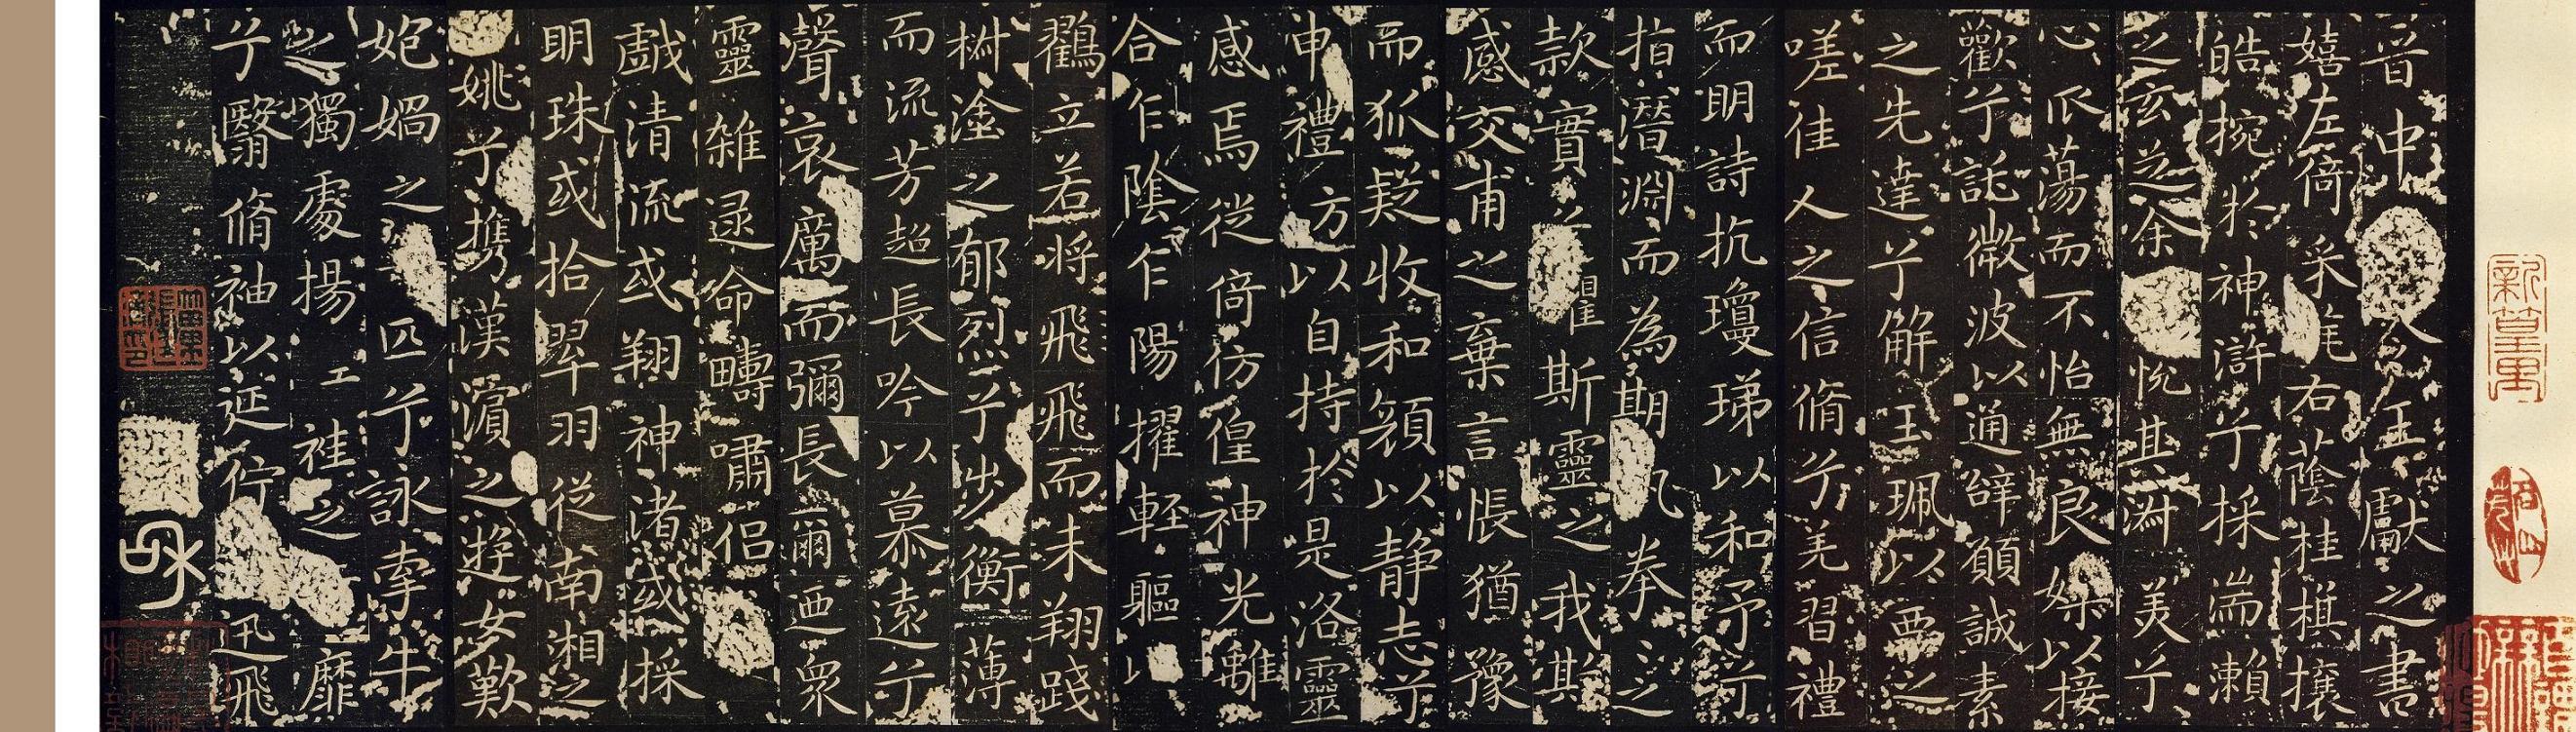 晉中令王獻之書
嬉左倚采旄右蔭桂棋攘
皓捥於神滸兮採湍瀨
之玄芝余悅其淑美兮
心爪蕩而不怡無良媒以接
歡兮託微波以通辭願誠素
之先達兮解玉珮以要之
嗟佳人之信脩兮羌習禮
而明詩抗瓊珶以和予兮
指潛淵而為期拳之
款實兮懼斯靈之我欺
感交甫之棄言悵猶豫
而狐疑收和顏以静志兮
申禮方以自持於是洛靈
感焉徙倚彷徨神光離
合乍陰乍陽擢輕軀以
鸖立若將飛飛而未翔踐
椒塗之郁烈兮步衡薄
而流芳超長吟以慕遠兮
聲哀厲而彌長爾迺衆
靈雜遝命疇嘯侶
戲清流或翔神渚或採
明珠或拾翠羽從南湘之
姚兮攜漢濱之遊女歎
匏媧之匹兮詠牽牛
之獨處揚袿之靡
兮翳脩袖以延佇迅飛